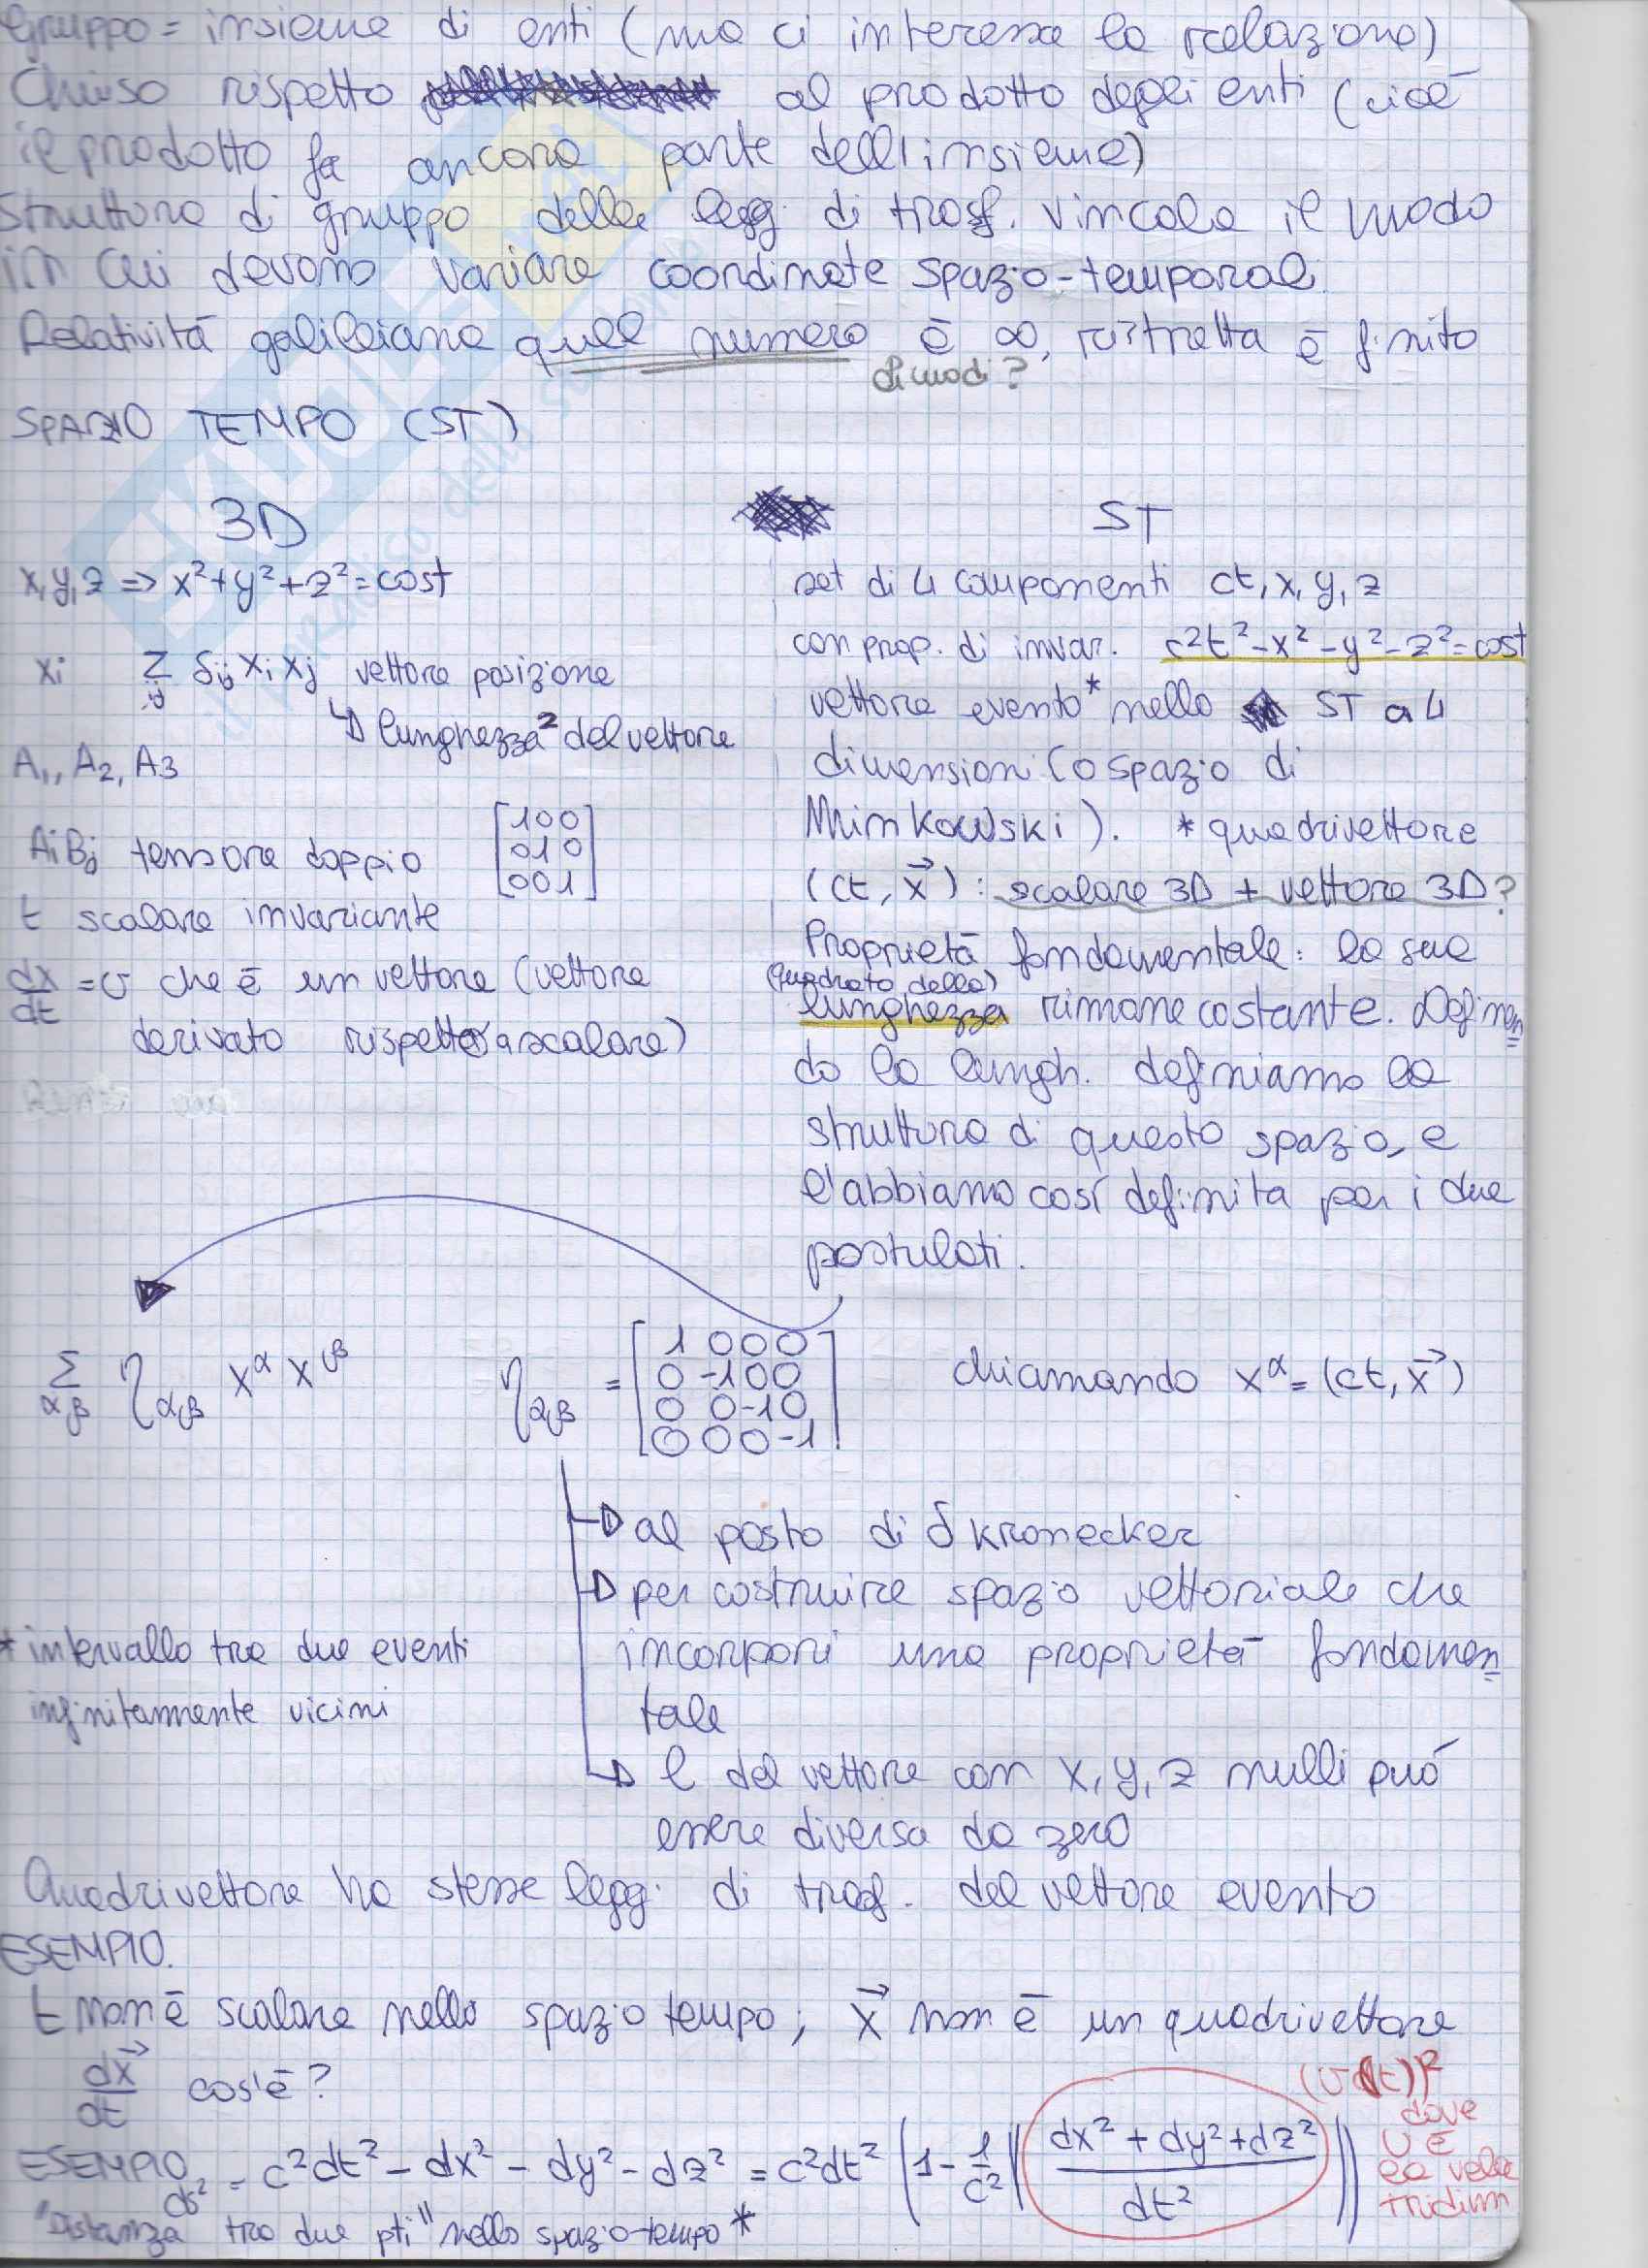 Gruppo = insieme di enti (ma ci interessa la relazione)
Chiuso rispetto al prodotto degli enti (cioè
il prodotto fa ancora parte dell'insieme)
Struttura di gruppo delle legg. di trasf. vincola il modo
in cui devono variare coordinate spazio-temporali.
Relatività galileiana quel numero è ∞, ristretta è finito
di modi?
SPAZIO TEMPO (ST)
3D
x, y, z => x²+y²+z²=cost
xi Σij δij xi xj vettore posizione
↳ lunghezza² del vettore
A1, A2, A3
AiBj tensore doppio [1 0 0
0 1 0
0 0 1]
t scalare invariante
dx/dt = v che è un vettore (vettore
derivato rispetto a scalare)
ST
set di 4 componenti ct, x, y, z
con prop. di invar. c²t²-x²-y²-z²=cost
vettore evento* nello ST a 4
dimensioni (o spazio di
Minkowski). * quadrivettore
(ct, x⃗): scalare 3D + vettore 3D?
Proprietà fondamentale: la sua
(quadrato della)
lunghezza rimane costante. Definen
do la lungh. definiamo la
struttura di questo spazio, e
l'abbiamo così definita per i due
postulati.
Σαβ ηαβ x^α x^β ηαβ = [1 0 0 0
0 -1 0 0
0 0 -1 0
0 0 0 -1] chiamando x^α = (ct, x⃗)
↳ al posto di δ kronecker
↳ per costruire spazio vettoriale che
incorpori una proprietà fondamen
tale
↳ l del vettore con x, y, z nulli può
essere diversa da zero
* intervallo tra due eventi
infinitamente vicini
Quadrivettore ha stesse legg. di trasf. del vettore evento
ESEMPIO.
t non è scalare nello spazio tempo; x⃗ non è un quadrivettore
dx⃗/dt cos'è?
ESEMPIO
ds² = c²dt² - dx² - dy² - dz² = c²dt² (1 - 1/c² ((dx² + dy² + dz²)/dt²))
dove
v è
la veloc
tridim
"Distanza tra due pti" nello spazio-tempo *